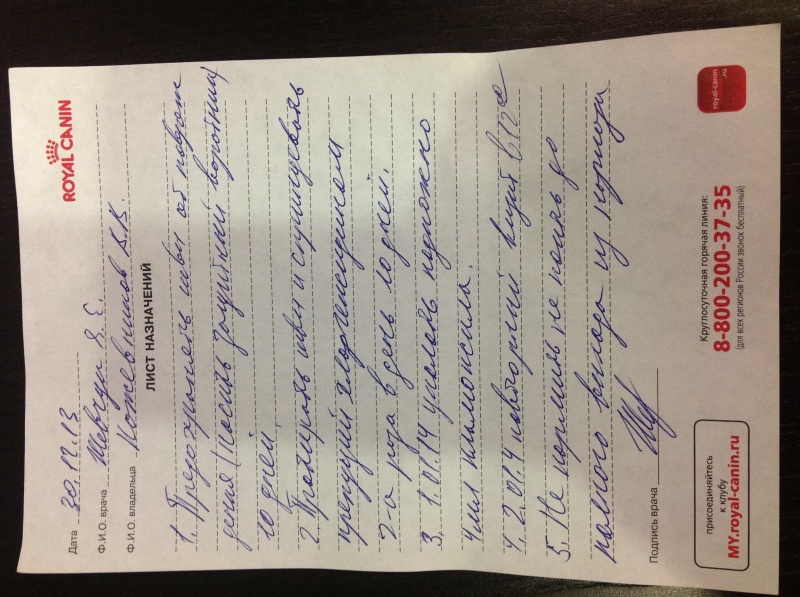 ROYAL CANIN
Дата 30.12.13
Ф.И.О. врача Шевчук Я. Е.
Ф.И.О. владельца Кожевников В.В.
ЛИСТ НАЗНАЧЕНИЙ
1. Предохранять швы от повреж
дения (носить защитный воротник)
10 дней.
2. Промывать швы и
хлоргексидином
2-а раза в день 10 дней.
3. 1.01.14 уколоть подкожно
1 мл амоксила.
4. 2.01.14 повторный визит в 12 00
5. Не кормить не поить до
полного выхода из наркоза
Подпись врача
присоединяйтесь
к клубу
MY.royal-canin.ru
Круглосуточная горячая линия:
8-800-200-37-35
(для всех регионов России звонок бесплатный)
royal-canin
.ru